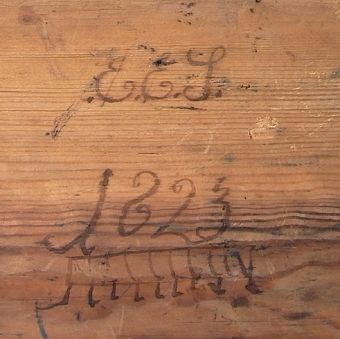 .E.E.S.
1823